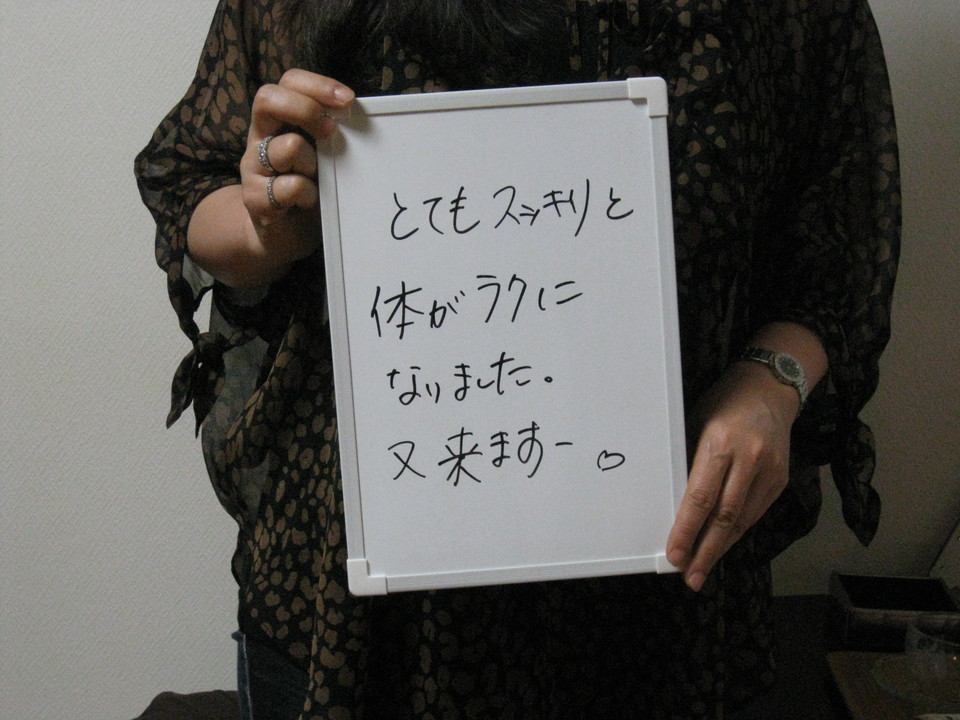 とてもスッキリと
体がラクに
なりました。
又来ますー♡